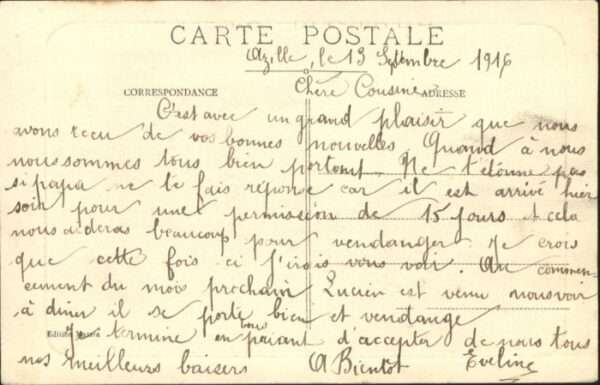 CARTE POSTALE
Azille, le 13 Septembre 1916
Chère Cousine
CORRESPONDANCE
ADRESSE
C'est avec un grand plaisir que nous
avons recu de vos bonnes nouvelles. Quand à nous
nous sommes tous bien portant. Ne t'étonne pas
si papa ne te fais réponse car il est arrivé hier
soir pour une permission de 15 jours et cela
nous aideras beaucoup pour vendanger. Je crois
que cette fois ci j'irais vous voir. Au commen-
cement du mois prochain Lucien est venu nous voir
à diner il se porte bien et vendange
Je termine en priant tous d'accepter de nous tous
nos meilleurs baisers A Bientot Eveline